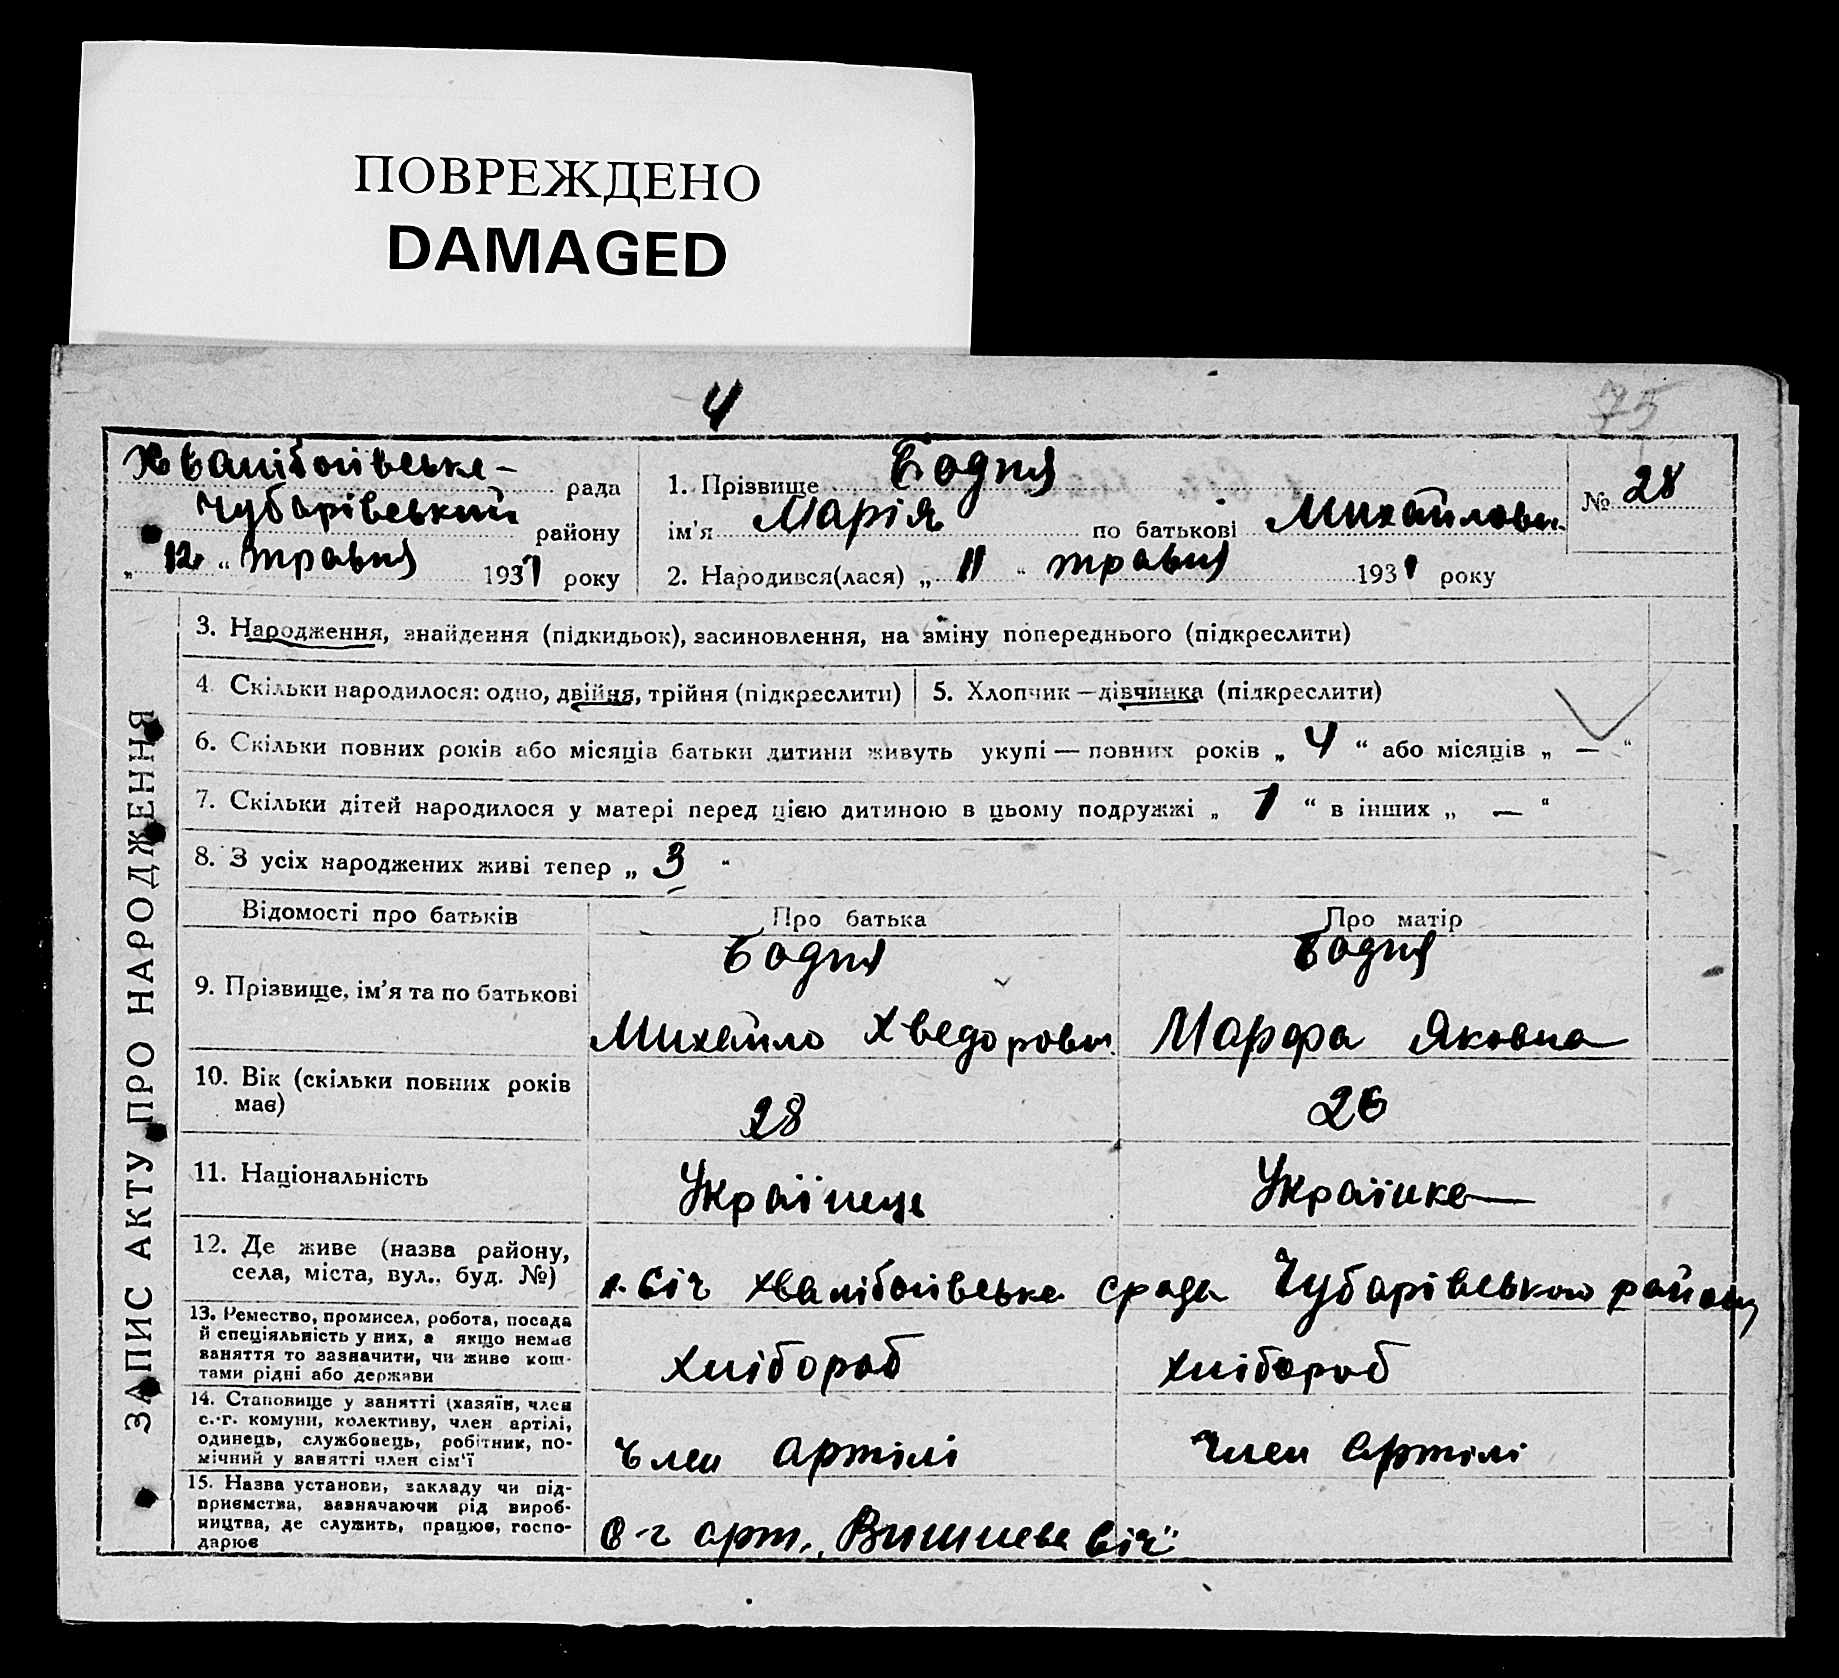 ПОВРЕЖДЕНО
DAMAGED
4
75
Хвалібоівське-
рада
Чубарівський
району
„ 12 “ травня 1931 року
1. Прізвище Бодня
ім'я Марія по батькові Михайловн.
2. Народився(лася) „ 11 “ травня 1931 року
№ 28
ЗАПИС АКТУ ПРО НАРОДЖЕННЯ
3. Народження, знайдення (підкидьок), засиновлення, на зміну попереднього (підкреслити)
4. Скільки народилося: одно, двійня, трійня (підкреслити)
5. Хлопчик — дівчинка (підкреслити)
6. Скільки повних років або місяців батьки дитини живуть укупі — повних років „ 4 “ або місяців „ — “
7. Скільки дітей народилося у матері перед цією дитиною в цьому подружжі „ 1 “ в інших „ — “
8. З усіх народжених живі тепер „ 3 “
Відомості про батьків
Про батька
Про матір
9. Прізвище, ім'я та по батькові
Бодня
Михайло Хведорови.
Бодня
Марфа Яковна
10. Вік (скільки повних років
має)
28
26
11. Національність
Українець
Українка
12. Де живе (назва району,
села, міста, вул., буд. №)
х. Січ Хвалібоівська срада Чубарівського району
13. Ремество, промисел, робота, посада
й спеціяльність у них, а якщо немає
заняття то зазначити, чи живе кош-
тами рідні або держави
хлібороб
хлібороб
14. Становище у занятті (хазяїн, член
с.-г. комуни, колективу, член артілі,
одинець, службовець, робітник, по-
мічний у занятті член сім'ї
Член артілі
Член артілі
15. Назва установи, закладу чи під-
приємства, зазначаючи рід вироб-
ництва, де служить, працює, госпо-
дарює
С-г арт. „Вишнева Січ“